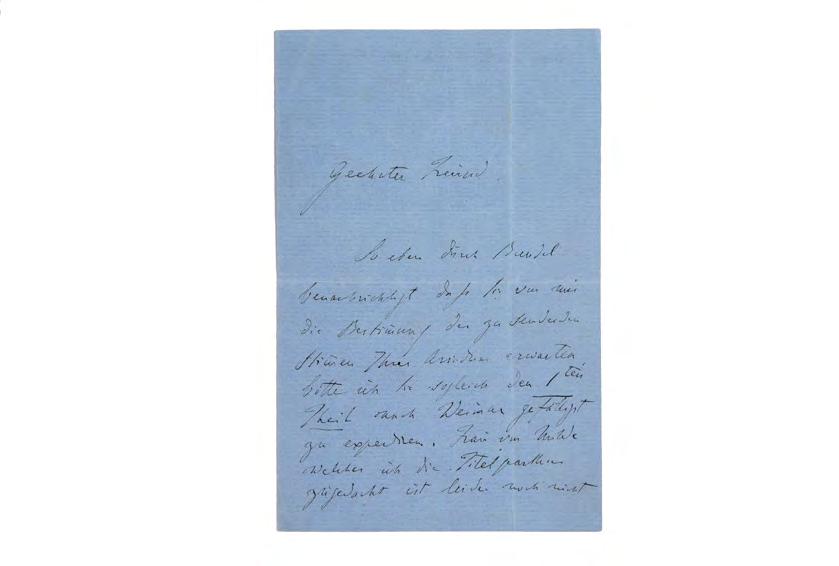 Geehrter Freund.
So eben durch Brendel
benachrichtigt daß Sie von mir
die Bestimmung der zu sendenden
Stimmen Ihrer erwarten,
bitte ich Sie sogleich den 1ten
Theil nach Weimar gefälligst
zu expediren. Frau von Milde
welcher ich die Titelparthie
zugedacht ist leider noch nicht